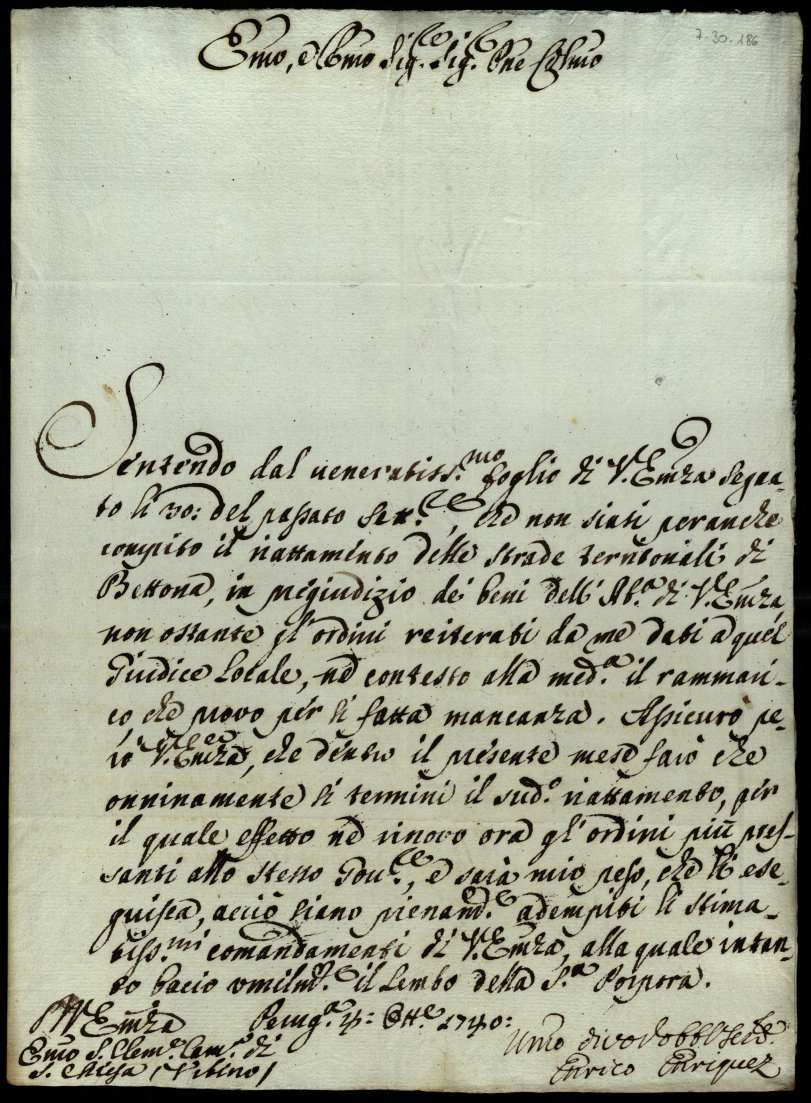 7-30.186
Emo, e Rmo Sig.re Sig.re Pne Colmo
Sentendo dal veneratiss.mo foglio di V. Emza segna-
to li 30: del passato Sett.re, che non siasi per anche
compito il riattamento delle strade territoriali di
Bettona, in pregiudizio dei beni dell' Ab.a di V. Emza,
non ostante gl'ordini reiterati da me dati a quel
Giudice Locale, ne contesto alla med.a il rammari-
co, che provo per sì fatta mancanza. Assicuro pe-
rò V. Emza, che dentro il presente mese farò che
onninamente si termini il sud.o riattamento, per
il quale effetto ne rinovo ora gl'ordini più pres-
santi allo stesso Gov.re, e sarà mio peso, che li ese-
guisca, acciò siano pienam.e adempiti li stima-
tiss.mi comandamenti di V. Emza, alla quale intan-
to bacio umilm.e il Lembo della S.a Porpora.
Di V. Emza Perug.a 4: Ott.e 1740:
Emo S. Clem.e Cam.o di
S. Chiesa / Vrbino /
Umo divo obbl Ser
Enrico Enriquez